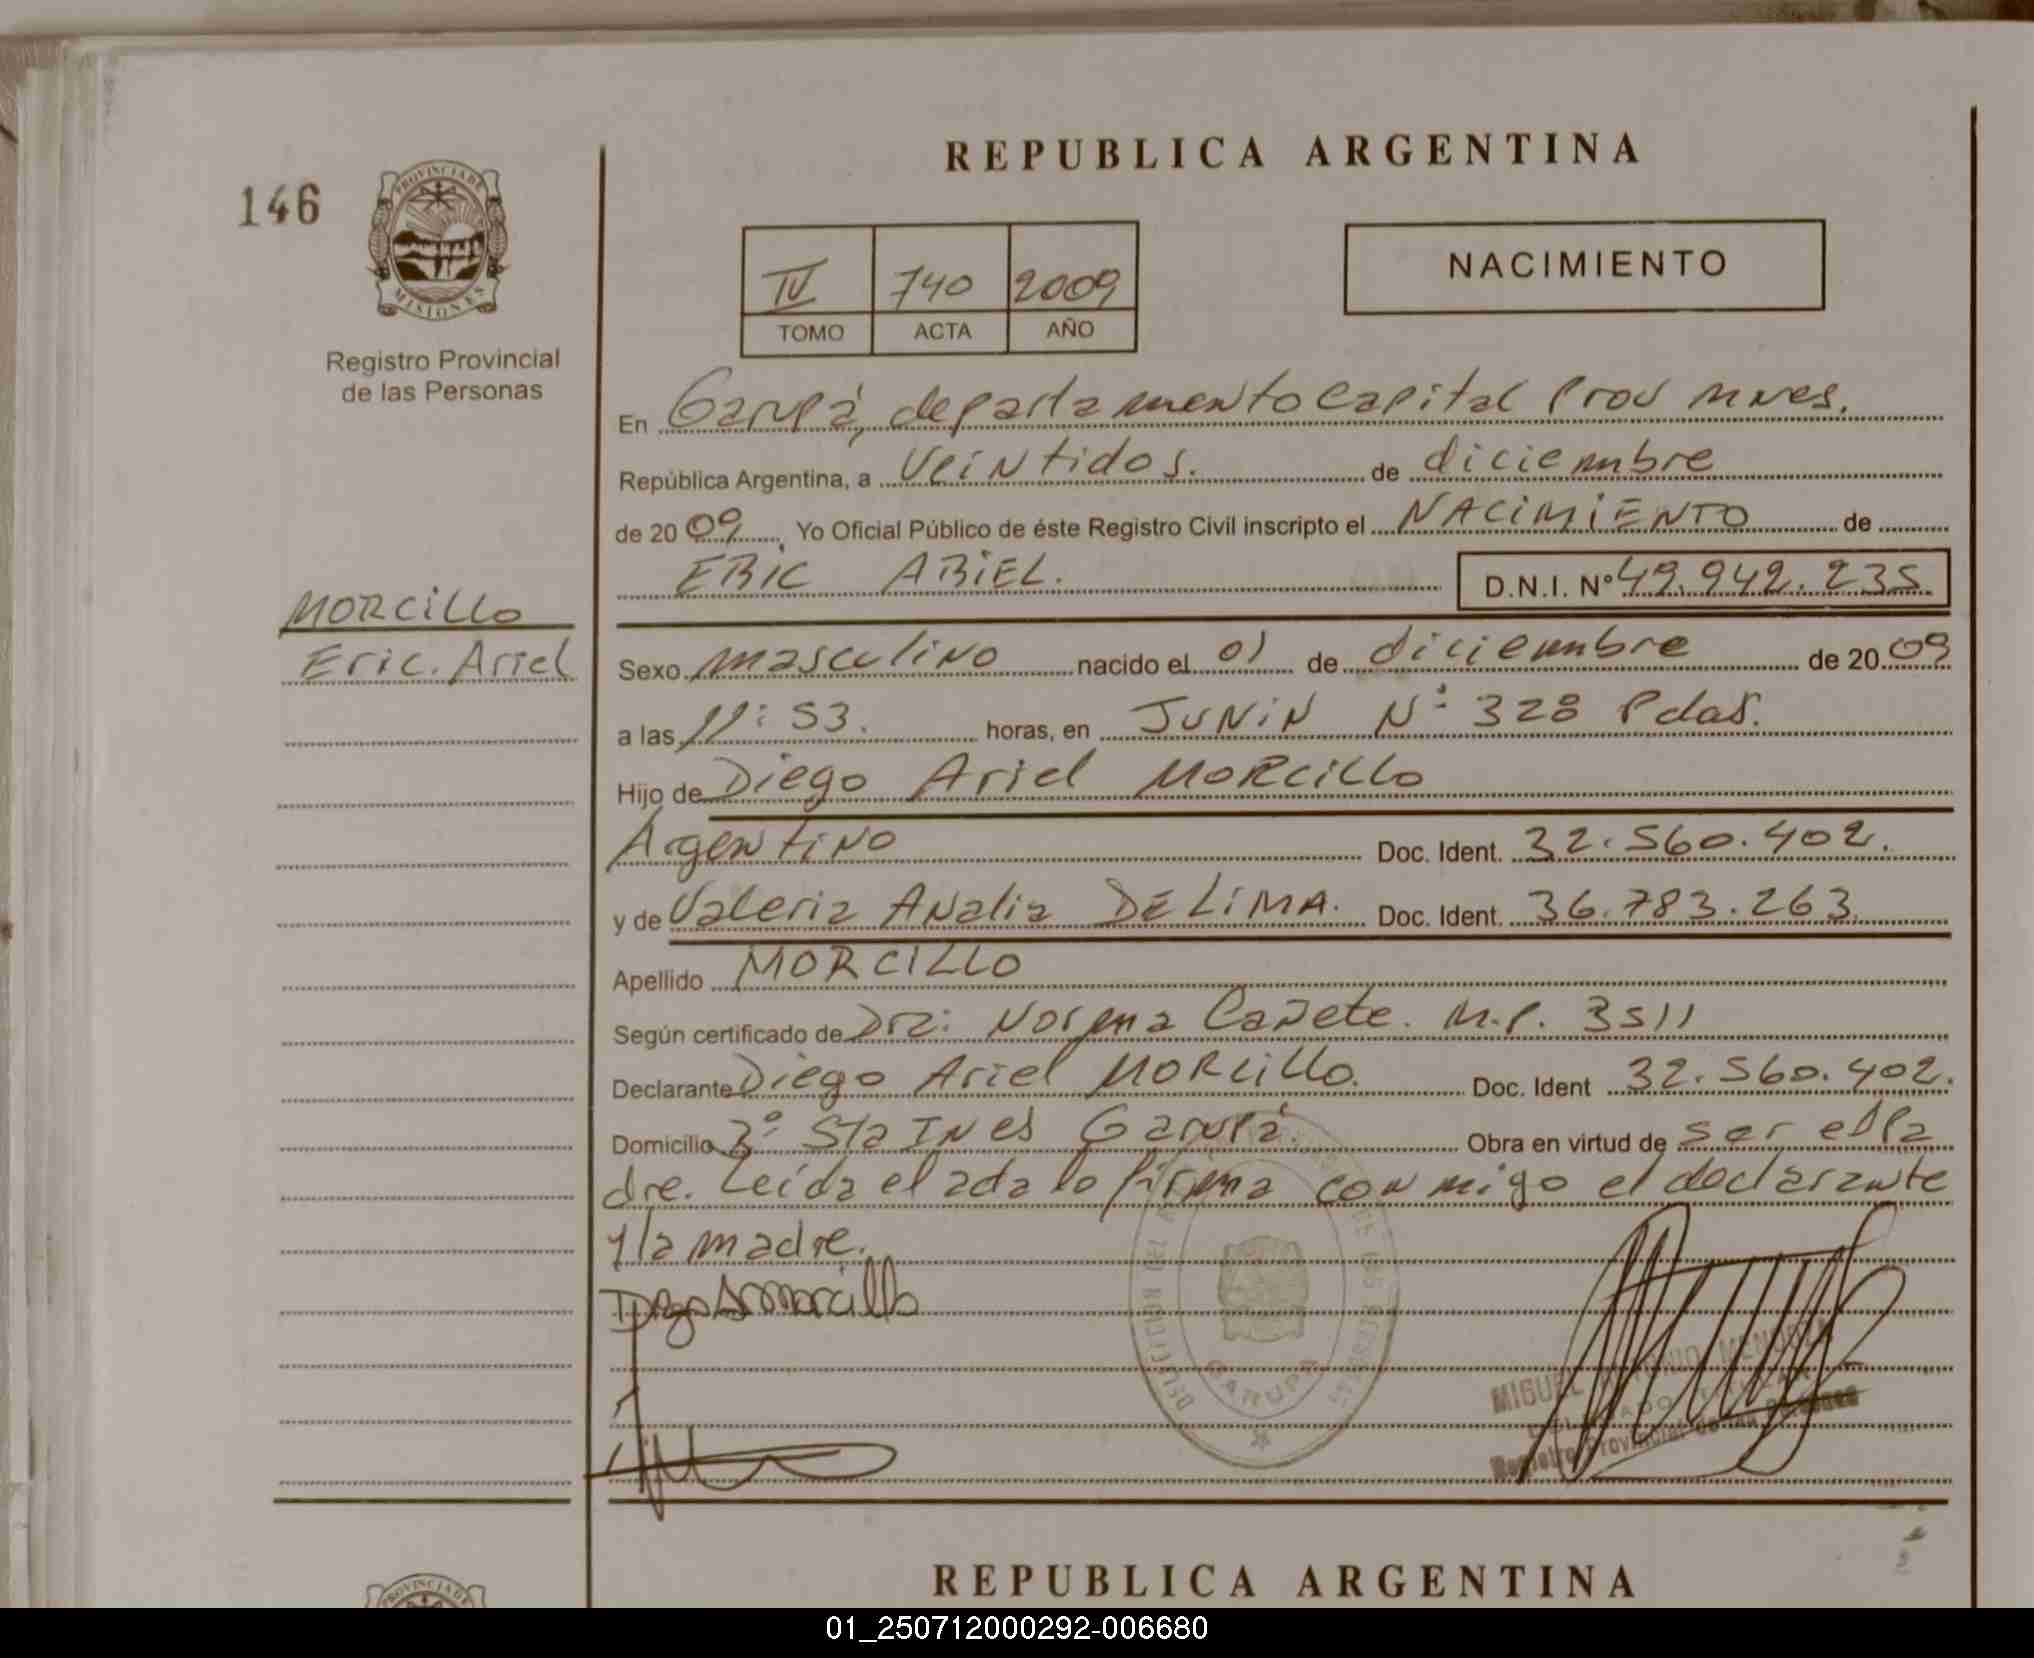 REPUBLICA ARGENTINA
146
PROVINCIA DE
MISIONES
Registro Provincial
de las Personas
IV 740 2009
TOMO ACTA AÑO
NACIMIENTO
En Garupá, departamento Capital Prov Mnes.
República Argentina, a Veintidos. de diciembre
de 2009, Yo Oficial Público de éste Registro Civil inscripto el NACIMIENTO de
ERIC ARIEL. D.N.I. Nº 49.942.235
MORCILLO
Eric. Ariel
Sexo masculino nacido el 01 de diciembre de 2009
a las 11:53. horas, en JUNIN Nº 328 Pdas.
Hijo de Diego Ariel MORCILLO
Argentino Doc. Ident. 32.560.402.
y de Valeria Analia DE LIMA. Doc. Ident. 36.783.263
Apellido MORCILLO
Según certificado de Dra: Norma Cañete. M.P. 3511
Declarante Diego Ariel MORCILLO. Doc. Ident 32.560.402.
Domicilio Bº Sta INES Garupá. Obra en virtud de ser el Pa
dre. Leida el acta lo firma conmigo el declarante
y la madre.
Diego A Morcillo
GARUPA
MIGUEL ANTONIO MENDOZA
DELEGADO TITULAR
Registro Provincial de las Personas
PROVINCIA DE
REPUBLICA ARGENTINA
01_250712000292-006680